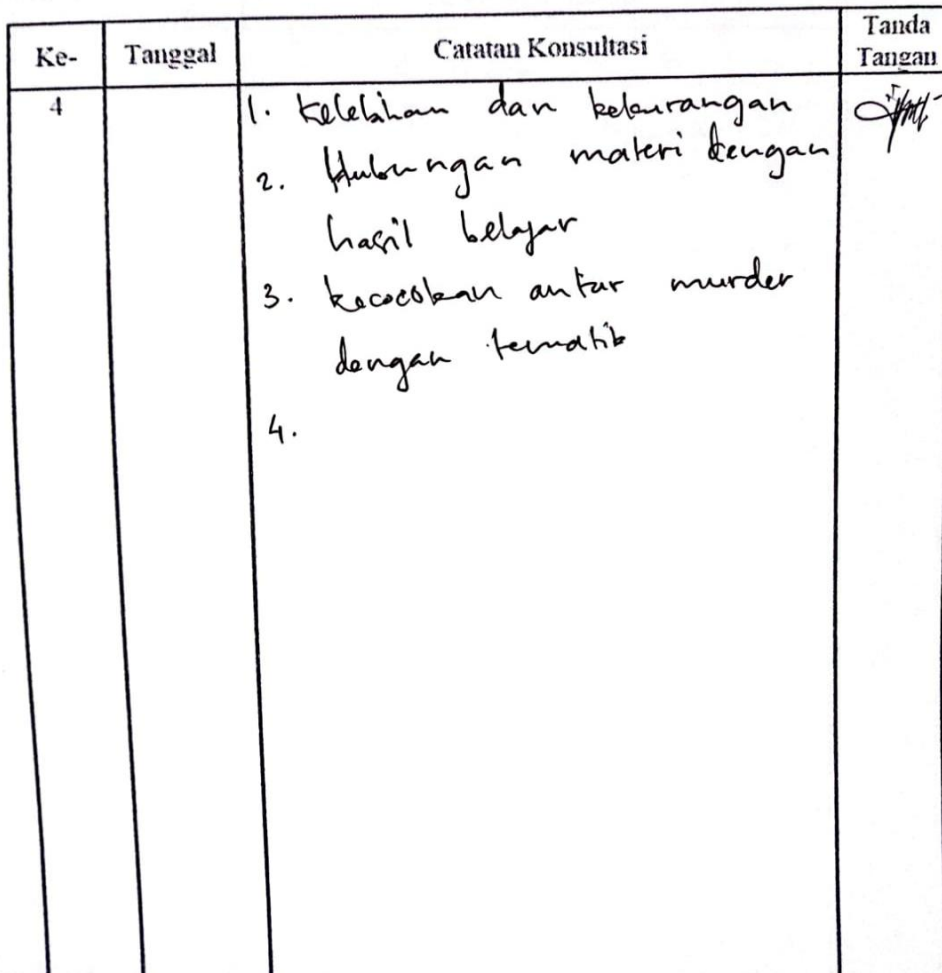 Ke- Tanggal Catatan Konsultasi Tanda Tangan
4
1. Kelebihan dan kekurangan
2. Hubungan materi dengan
hasil belajar
3. kecocokan antar murder
dengan tematik
4.